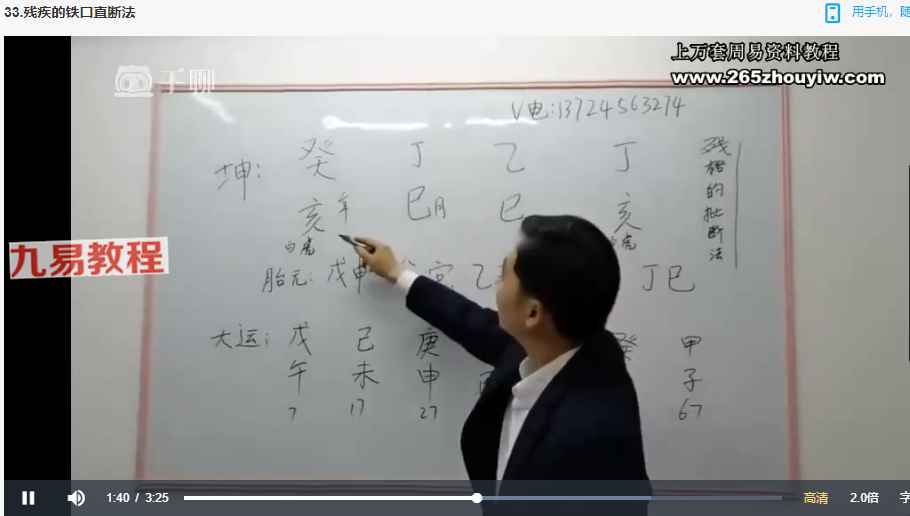 33.残疾的铁口直断法
用手机,随
上万套周易资料教程
www.265zhouyiw.com
千聊
九易教程
V电:13724563274
残档的批断法
坤: 癸 丁 乙 丁
亥年 巳月 巳 亥
白虎 白虎
胎元: 戊申 宫: 乙 丁巳
大运: 戊 己 庚 癸 甲
午 未 申 子
7 17 27 67
1:40 / 3:25
高清
2.0倍
字